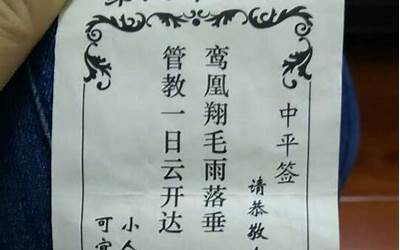 中平签
请恭敬
鸾凰翔毛雨落垂
管教一日云开达
小人
可宜